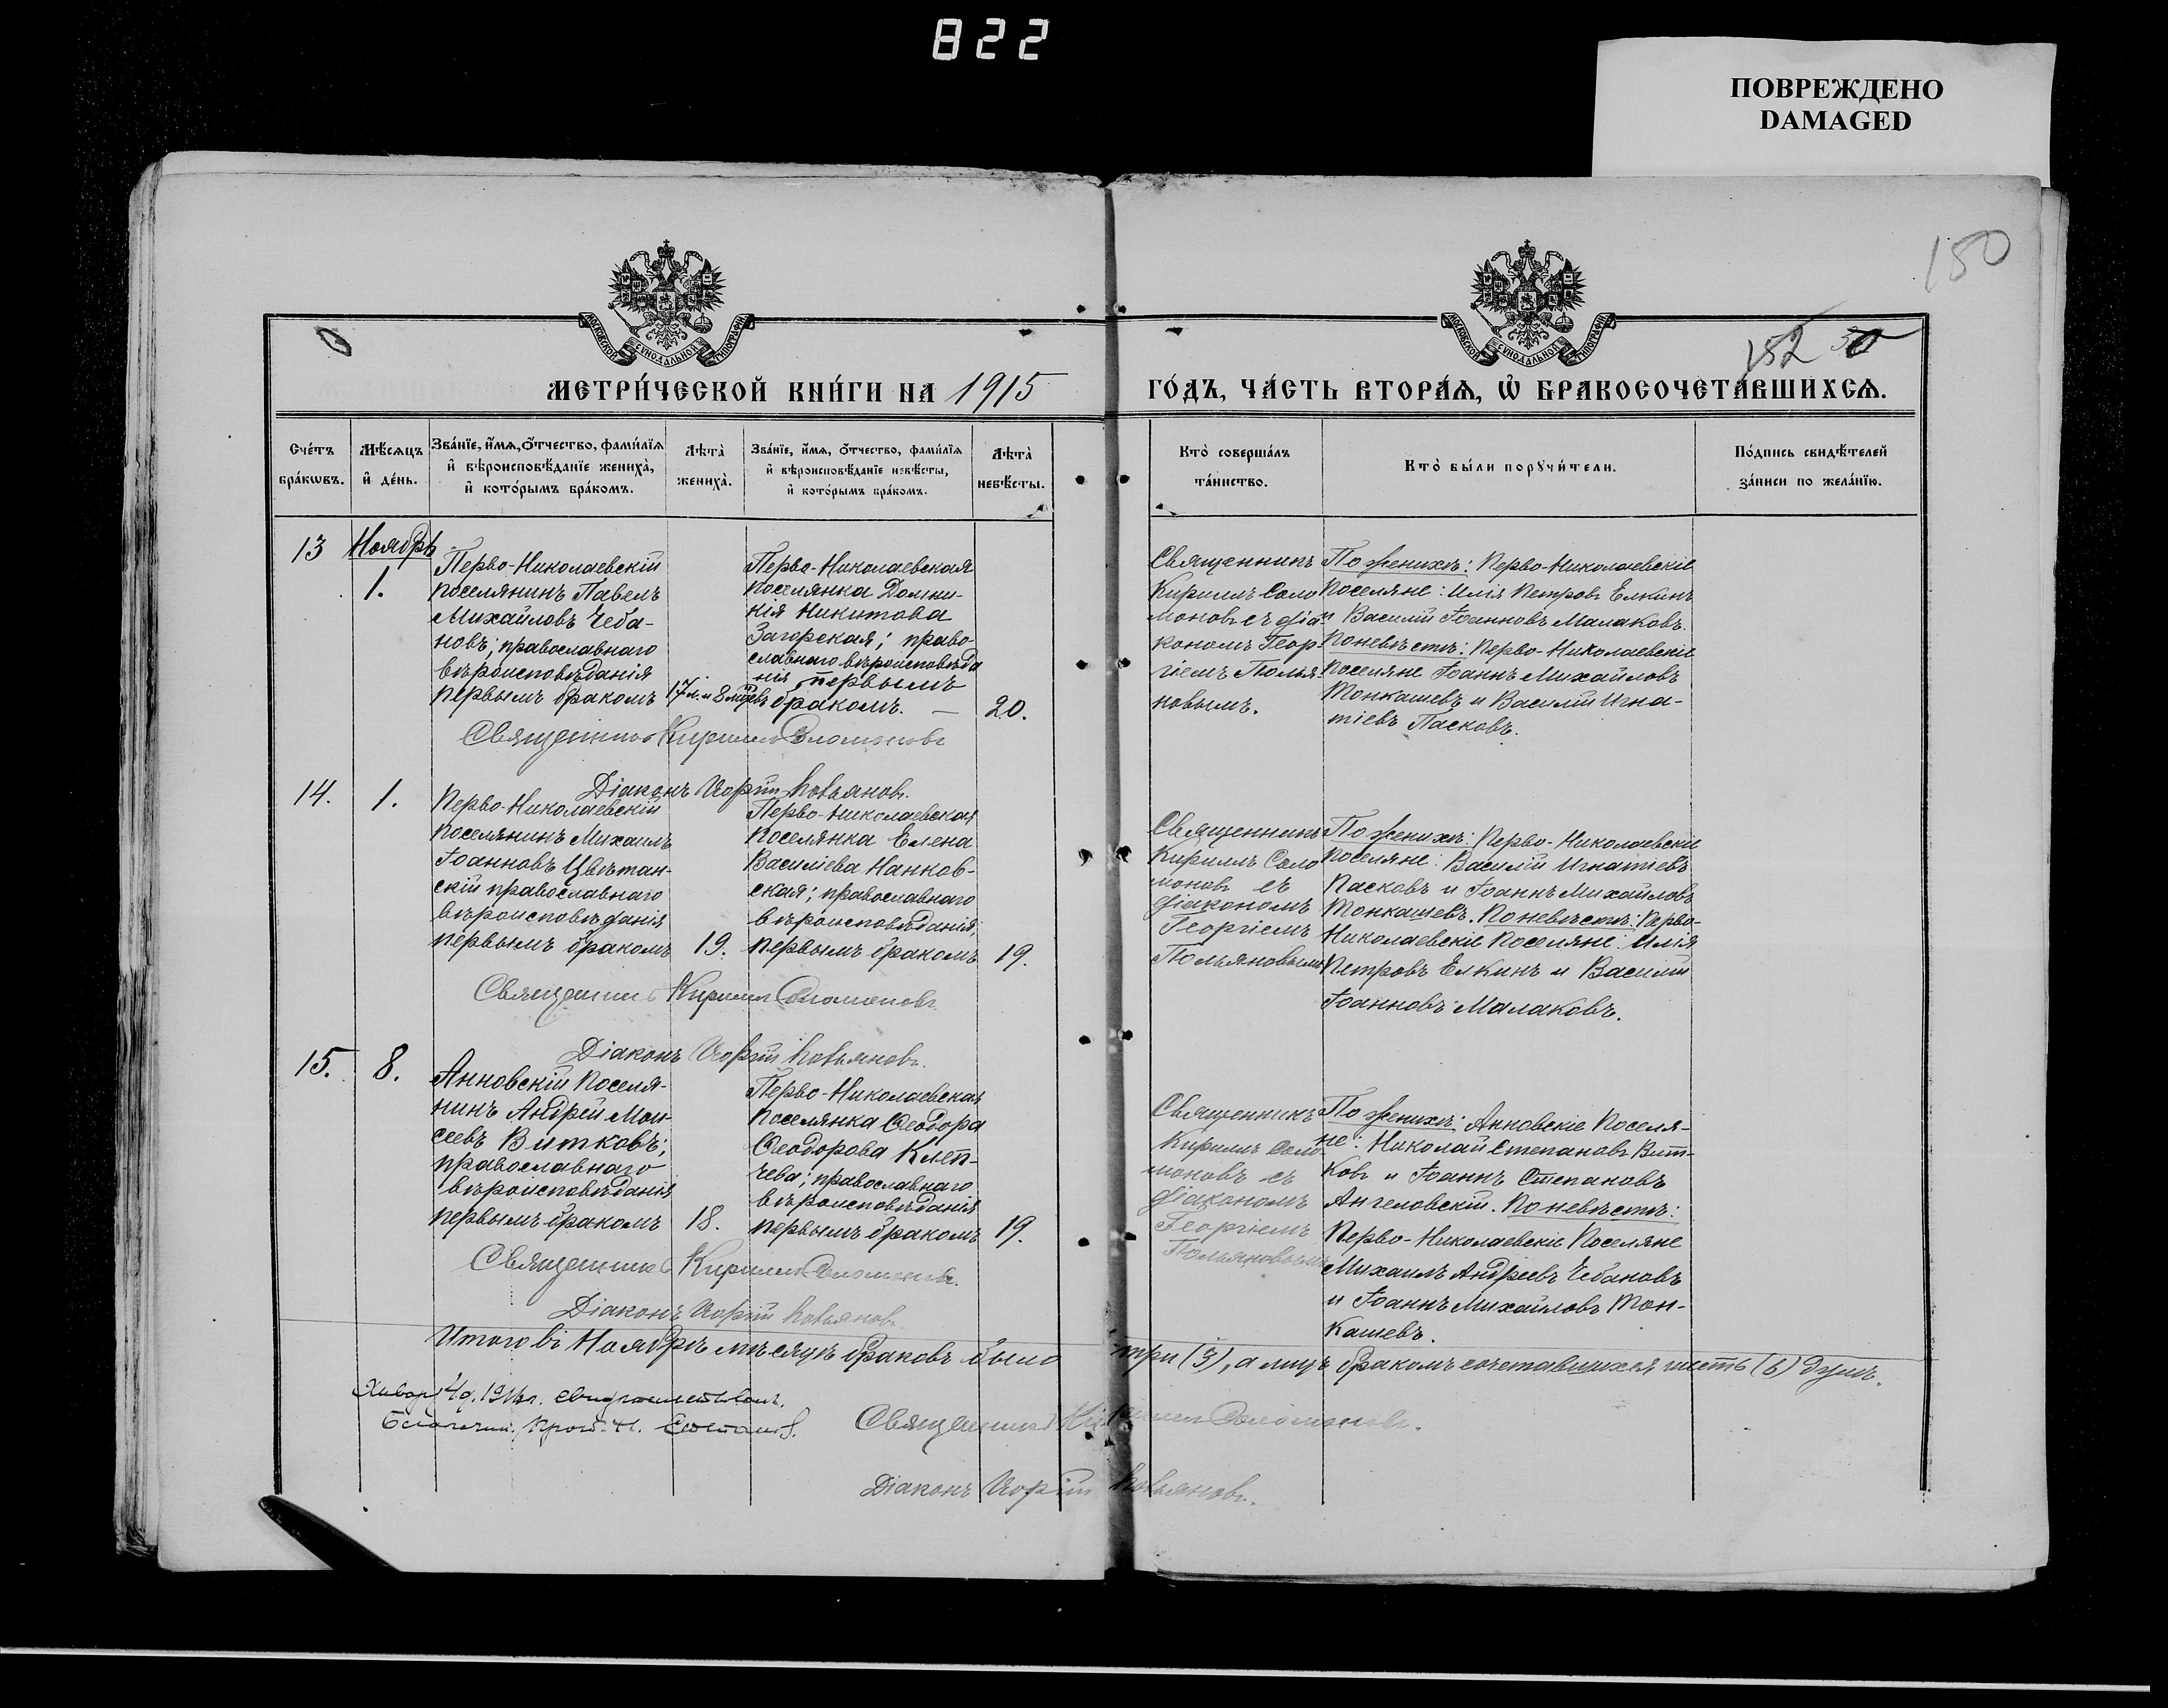 822
ПОВРЕЖДЕНО
DAMAGED
150
152 30
МОСКОВСКОЙ СУНОДАЛЬНОЙ ТИПОГРАФІИ
МОСКОВСКОЙ СУНОДАЛЬНОЙ ТИПОГРАФІИ
МЕТРИ́ЧЕСКОЙ КНИ́ГИ НА 1915
ГО́ДЪ, ЧА́СТЬ ВТОРА́Ѧ, Ѽ БРАКОСОЧЕТА́ВШИХСѦ.
Сче́тъ
бра́кѡвъ.
Мѣ́сяцъ
и҆ де́нь.
Зва́нїе, и҆́мѧ, ѻ҆́тчество, фами́лїѧ
и҆ вѣроисповѣ́данїе жениха̀,
и҆ кото́рымъ бра́комъ.
Лѣта̀
жениха̀.
Зва́нїе, и҆́мѧ, ѻ҆́тчество, фами́лїѧ
и҆ вѣроисповѣ́данїе невѣ́сты,
и҆ кото́рымъ бра́комъ.
Лѣта̀
невѣ́сты.
Кто̀ соверша́лъ
та́инство.
Кто̀ бы́ли порꙋчи́тели.
По́дпись свидѣ́телей
за́писи по жела́нїю.
13
Ноябрь
1.
Перво-Николаевскій
поселянинъ Павелъ
Михайловъ Чеба-
новъ; православнаго
вѣроисповѣданія
первымъ бракомъ
17 л. и 8 мѣс
Перво-Николаевская
поселянка Домни-
кія Никитова
Загорская; право-
славнаго вѣроисповѣда
нія первымъ
бракомъ. —
20.
Священникъ
Кириллъ Соло
моновъ съ діа-
кономъ Геор-
гіемъ Полья-
новымъ.
По женихѣ: Перво-Николаевскіе
поселяне: Илія Петровъ Елкинъ
и Василій Іоанновъ Малаковъ.
По невѣстѣ: Перво-Николаевскіе
поселяне Іоаннъ Михайловъ
Тонкашевъ и Василій Игна-
тіевъ Пасковъ.
Священникъ Кириллъ Соломоновъ
Діаконъ Георгій Польяновъ.
14.
1.
Перво-Николаевскій
поселянинъ Михаилъ
Іоанновъ Цвѣтан-
скій православнаго
вѣроисповѣданія
первымъ бракомъ
19.
Перво-Николаевская
поселянка Елена
Василіева Нанков-
ская; православнаго
вѣроисповѣданія
первымъ бракомъ
19.
Священникъ
Кириллъ Соло
моновъ съ
діакономъ
Георгіемъ
Польяновымъ
По женихѣ: Перво-Николаевскіе
поселяне: Василій Игнатіевъ
Пасковъ и Іоаннъ Михайловъ
Тонкашевъ. По невѣстѣ: Перво-
Николаевскіе поселяне: Илія
Петровъ Елкинъ и Василій
Іоанновъ Малаковъ.
Священникъ Кириллъ Соломоновъ
Діаконъ Георгій Польяновъ.
15.
8.
Анновскій поселя-
нинъ Андрей Мои-
сеевъ Витковъ;
православнаго
вѣроисповѣданія
первымъ бракомъ
18.
Перво-Николаевская
поселянка Ѳеодора
Ѳеодорова Клеп-
чева; православнаго
вѣроисповѣданія
первымъ бракомъ
19.
Священникъ
Кириллъ Соло
моновъ съ
діакономъ
Георгіемъ
Польяновымъ
По женихѣ: Анновскіе поселя-
не: Николай Степановъ Вит-
ковъ и Іоаннъ Степановъ
Ангеловскій. По невѣстѣ:
Перво-Николаевскіе поселяне
Михаилъ Андреевъ Чебановъ
и Іоаннъ Михайловъ Тон-
кашевъ.
Священникъ Кириллъ Соломоновъ.
Діаконъ Георгій Польяновъ.
Итого въ Ноябрѣ мѣсяцѣ браковъ было три (3), а лицъ бракомъ сочетавшихся шесть (6) душъ.
1916 г. свидѣтельствовалъ.
Благочин. Прот. Н.
Священникъ Кириллъ Соломоновъ.
Діаконъ Георгій Польяновъ.